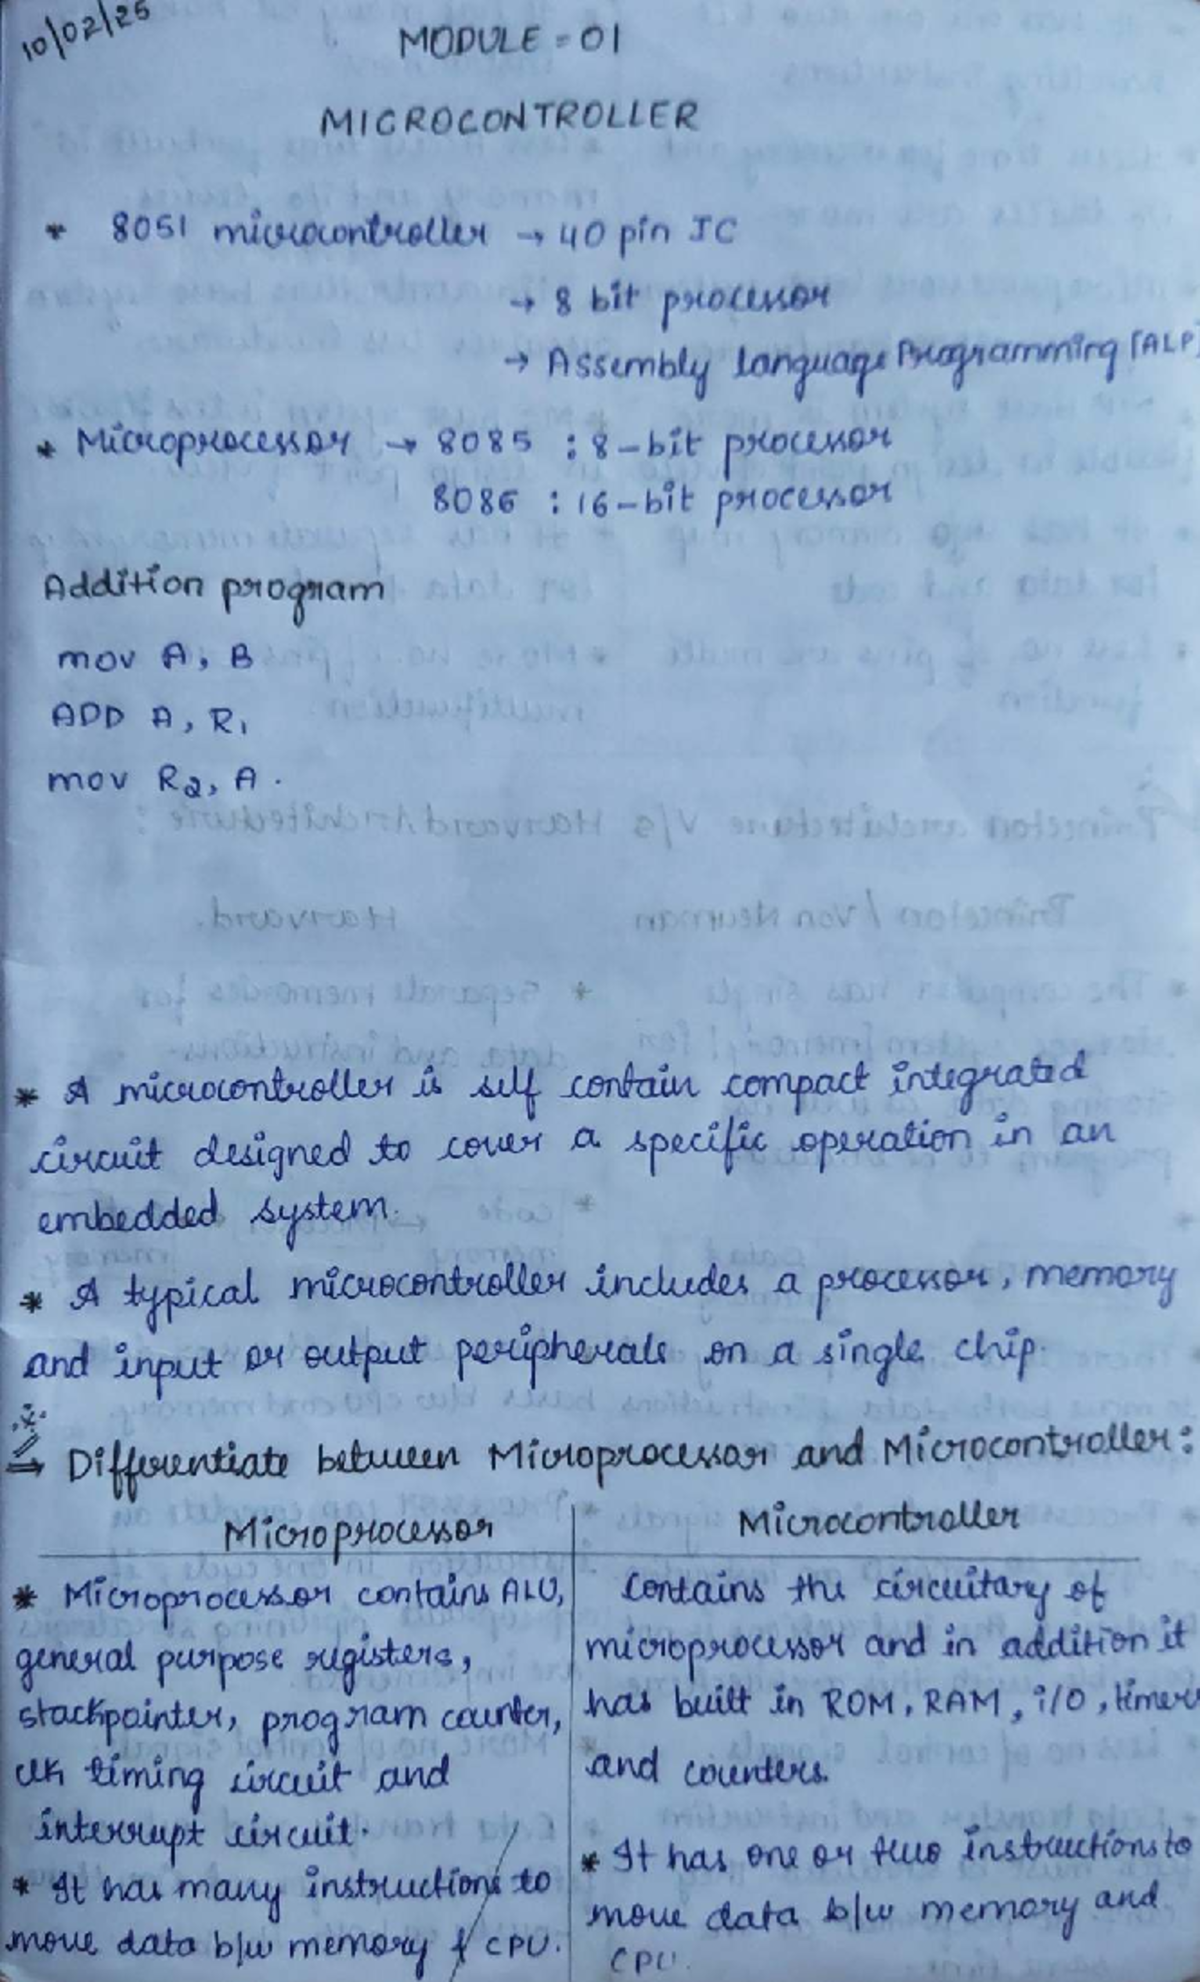 10/02/25
MODULE - 01
MICROCONTROLLER
* 8051 microcontroller → 40 pin IC
→ 8 bit processor
→ Assembly language Programming [ALP]
* Microprocessor → 8085 : 8-bit processor
8086 : 16-bit processor
Addition program
mov A, B
ADD A, R1
mov R2, A.
* A microcontroller is self contain compact integrated
circuit designed to cover a specific operation in an
embedded system.
* A typical microcontroller includes a processor, memory
and input or output peripherals on a single chip.
⇒ Differentiate between Microprocessor and Microcontroller:
Microprocessor
* Microprocessor contains ALU,
general purpose registers,
stackpointer, program counter,
clk timing circuit and
interrupt circuit.
* It has many instructions to
move data b/w memory & CPU.
Microcontroller
Contains the circuitary of
microprocessor and in addition it
has built in ROM, RAM, i/O, timer
and counters.
* It has one or two instructions to
move data b/w memory and
CPU.